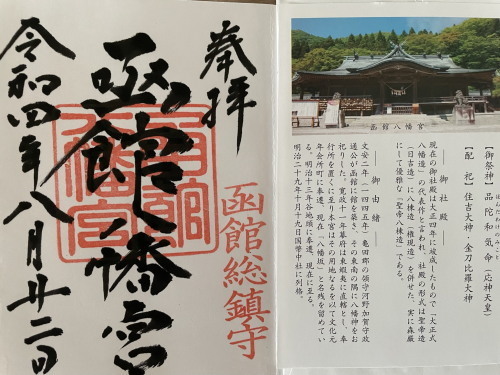 奉拝
函館八幡宮
函館八幡宮
函館総鎮守
令和四年八月廿二日
函館八幡宮
【御祭神】品陀和気命(応神天皇)
ほんだわけのみこと
【配祀】住吉大神・金刀比羅大神
御社殿
現在の御社殿は大正四年に竣成したもので「大正式
八幡造」の代表作と言われ、社殿の形式は聖帝造
(日吉造)に八棟造(権現造)を併せた、実に森厳
にして優雅な「聖帝八棟造」である。
御由緒
文安二年(一四四五年)亀田郡の領守河野加賀守政
通公が函館に館を築き、その東南の隅に八幡神をお
祀りした。寛政十一年幕府は東蝦夷に直轄とし、奉
行所を置くに至り本宮はその用地なるを以て文化元
年会所町に奉遷。現在「八幡坂」と名残を留めてい
る。明治十三年谷地頭に奉遷、現在に至る。
明治二十九年十月十九日国幣中社に列格。